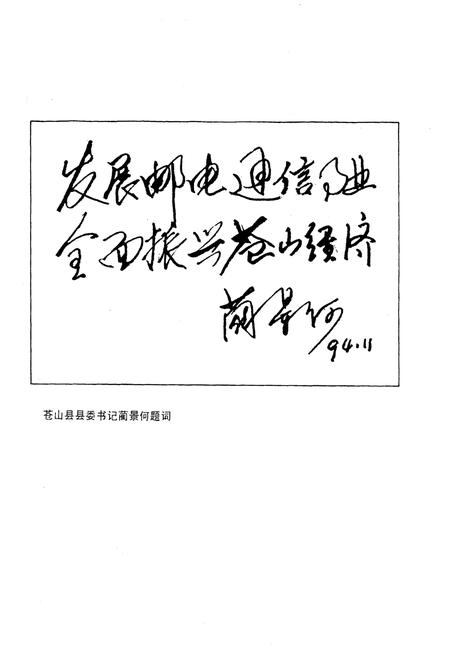 发展邮电通信事业
全面振兴苍山经济
蔺景何
94.11
苍山县县委书记蔺景何题词